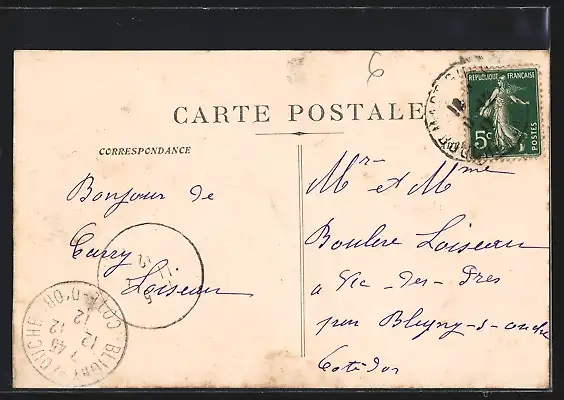 6
CARTE POSTALE
RÉPUBLIQUE FRANÇAISE
5c
POSTES
CORRESPONDANCE
Bonjour de
Curry
Loiseau
Mr et Mme
Boulere Loiseau
a Vic-des-Pres
par Bligny-s-ouche
Cote dor
BLIGNY S OUCHE
COTE-D'OR
7 45
12
12